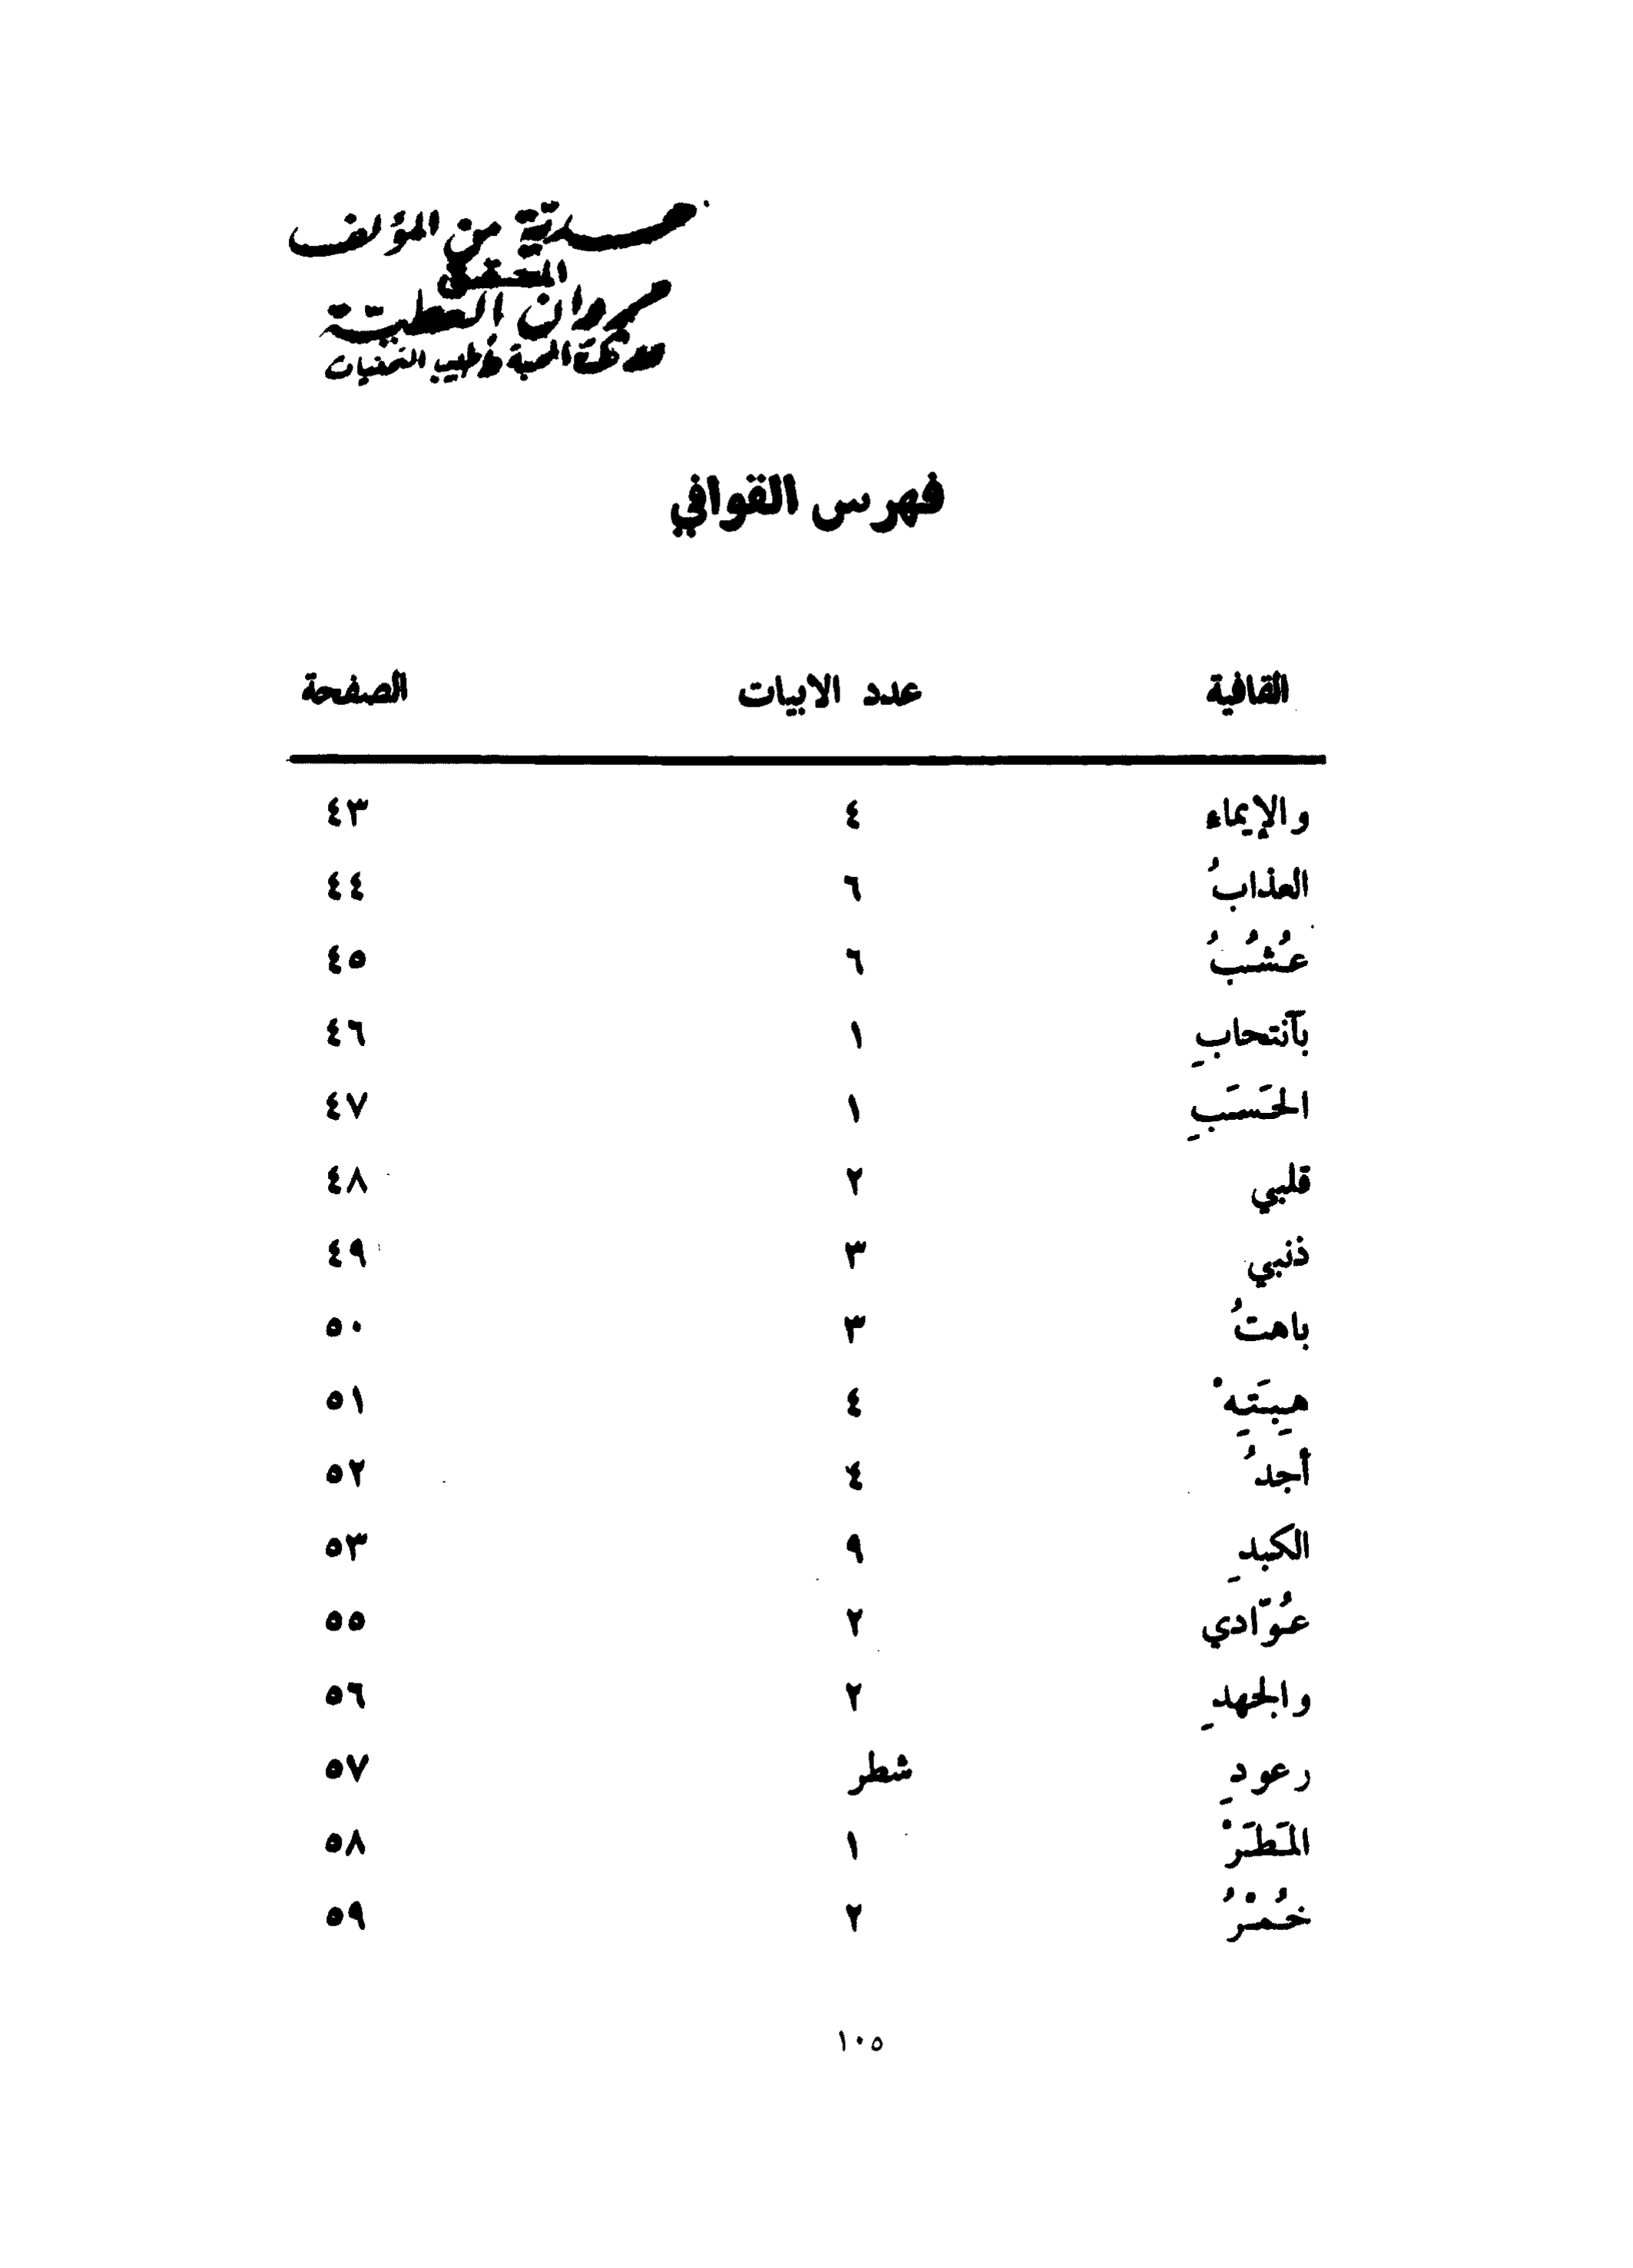 هدية من المؤلف
المحقق
مروان العطية
مع المحبة وأطيب التمنيات
فهرس القوافي
القافية عدد الابيات الصفحة
والإيماء ٤ ٤٣
العذابُ ٦ ٤٤
عُشُبُ ٦ ٤٥
بآنتحابِ ١ ٤٦
الحَسَبِ ١ ٤٧
قلبي ٢ ٤٨
ذنبي ٣ ٤٩
باهتُ ٣ ٥٠
هِبَتِهْ ٤ ٥١
أجدُ ٤ ٥٢
الكبدِ ٩ ٥٣
عُوّادي ٢ ٥٥
والجهدِ ٢ ٥٦
رعودِ شطر ٥٧
المَطَرْ ١ ٥٨
خُمْرُ ٢ ٥٩
١٠٥